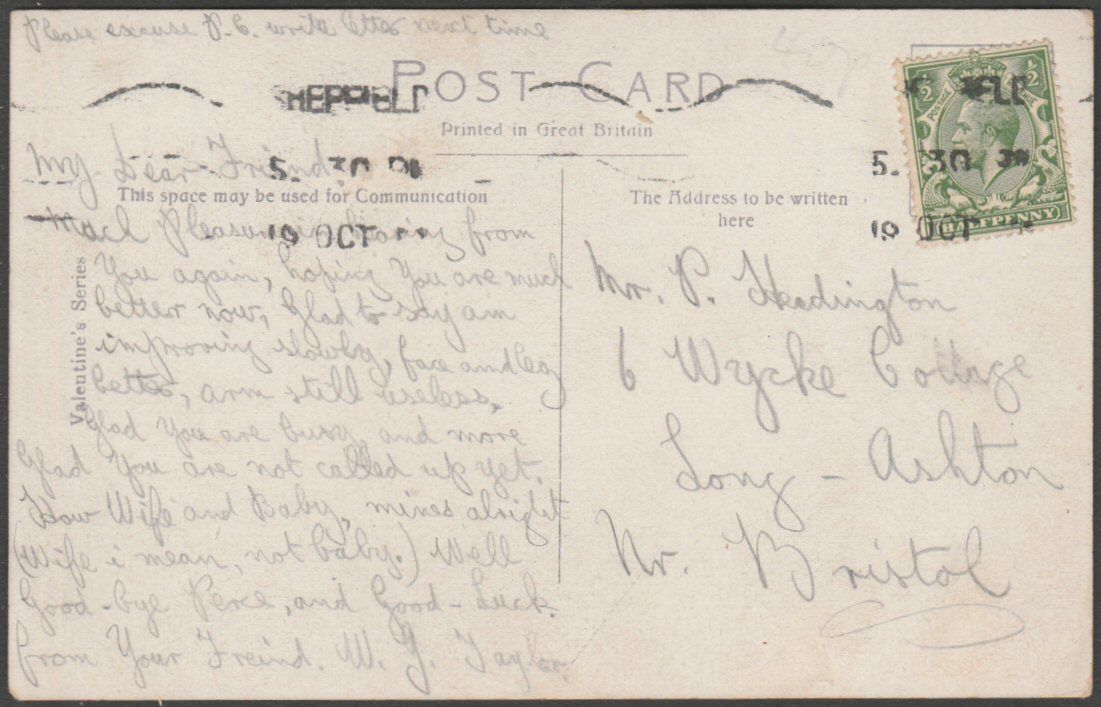 Please excuse P.C. write letter next time
POST CARD
Printed in Great Britain
This space may be used for Communication
The Address to be written
here
Valentine's Series
SHEFFIELD
5. 30 PM
19 OCT
5. 30 PM
19 OCT
HALFPENNY
My Dear Friend,
Much Pleasure in hearing from
You again, hoping You are much
better now, Glad to say am
improving slowly, face and leg
better, arm still useless.
Glad You are busy and more
Glad You are not called up yet.
How Wife and Baby, mines alright
(Wife i mean, not baby.) Well
Good-bye Perce, and Good-Luck.
from Your Freind. W. G. Taylor
Mr. P. Headington
6 Wycke Cottage
Long - Ashton
Nr. Bristol